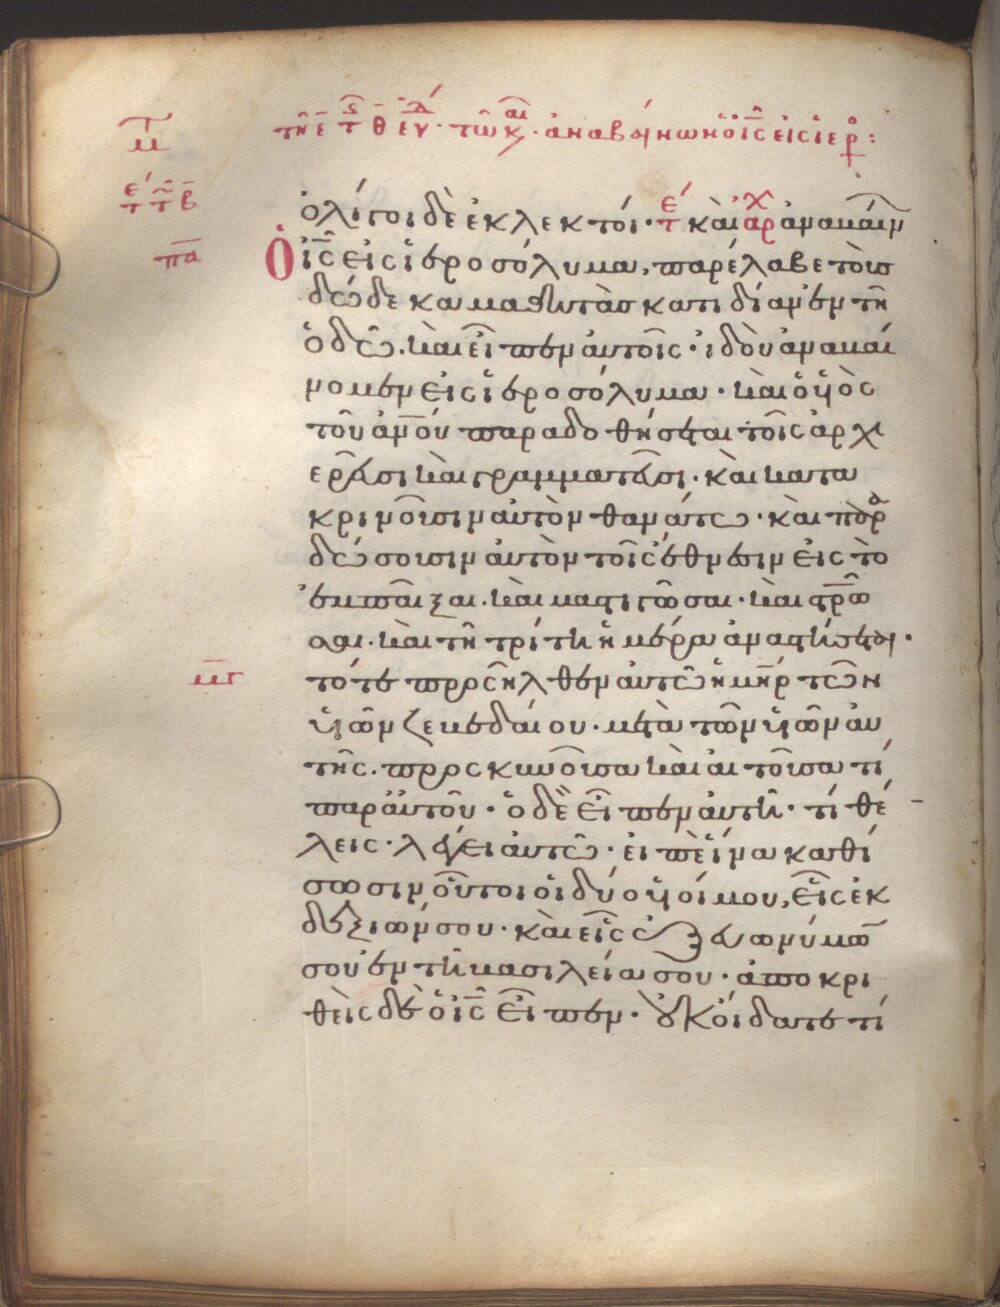 τῇ ε̄ τ ς θ̄ ευ τῶ κ αι ἀναβαίνων ὁ ἰς εἰς ἱερο :
ὀλίγοι δὲ ἐκλεκτοί · τέ καὶ ἀρχ ἀναβαίν
πᾱ
Ὁ ἰς εἰς ἱεροσόλυμα, παρέλαβε τοὺς
δώδεκα μαθητὰς κατιδίαν ἐν τῆ
ὁδῶ. καὶ εἶπεν αὐτοῖς · ἰδοὺ ἀναβαί
νομεν εἰς ἱεροσόλυμα · καὶ ὁ ὑιὸς
τοῦ ἀνου παραδοθήσεται τοῖς ἀρχι
ερεῦσι καὶ γραμματεῦσι · καὶ κατα
κρινοῦσιν αὐτὸν θανάτω · καὶ παρα
δώσουσιν αὐτὸν τοῖς ἔθνεσιν εἰς τὸ
ἐμπαῖξαι. καὶ μαστιγῶσαι · καὶ στρῶ
σαι. καὶ τῆ τρίτη ἡμέρα ἀναστήσεται ·
μγ
τότε προσῆλθεν αὐτῶ ἡ μηρ τῶν
ὑιῶν ζεβεδαίου · μετὰ τῶν ὑιῶν αὐ
τῆς. προσκυνοῦσα καὶ αἰτοῦσα τί
παρ αὐτοῦ · ὁ δὲ εἶπεν αὐτῆ · τί θέ
λεις · λέγει αὐτῶ · εἰπὲ ἵνα καθί
σωσιν οὗτοι οἱ δύο ὑιοί μου, εἷς ἐκ
δεξιῶν σου · καὶ εἷς ἐξ εὐωνύμων
σου ἐν τῆ βασιλεία σου · ἀποκρι
θεὶς δὲ ὁ ἰς εἶπεν · οὐκ οἴδατε τί